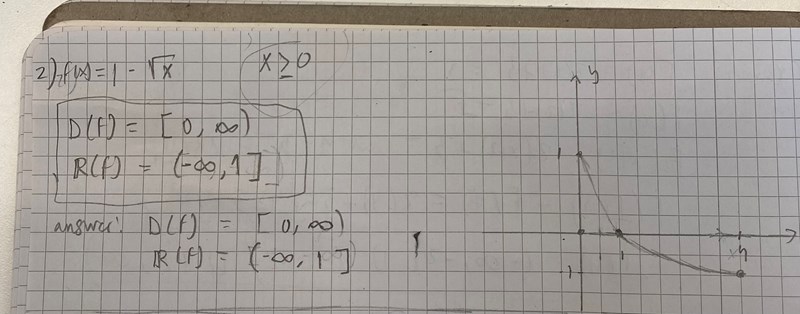 2) f(x) = 1 - √x x ≥ 0
D(f) = [0, ∞)
R(f) = (-∞, 1]
answer: D(f) = [0, ∞)
R(f) = (-∞, 1]
y
1
1
1